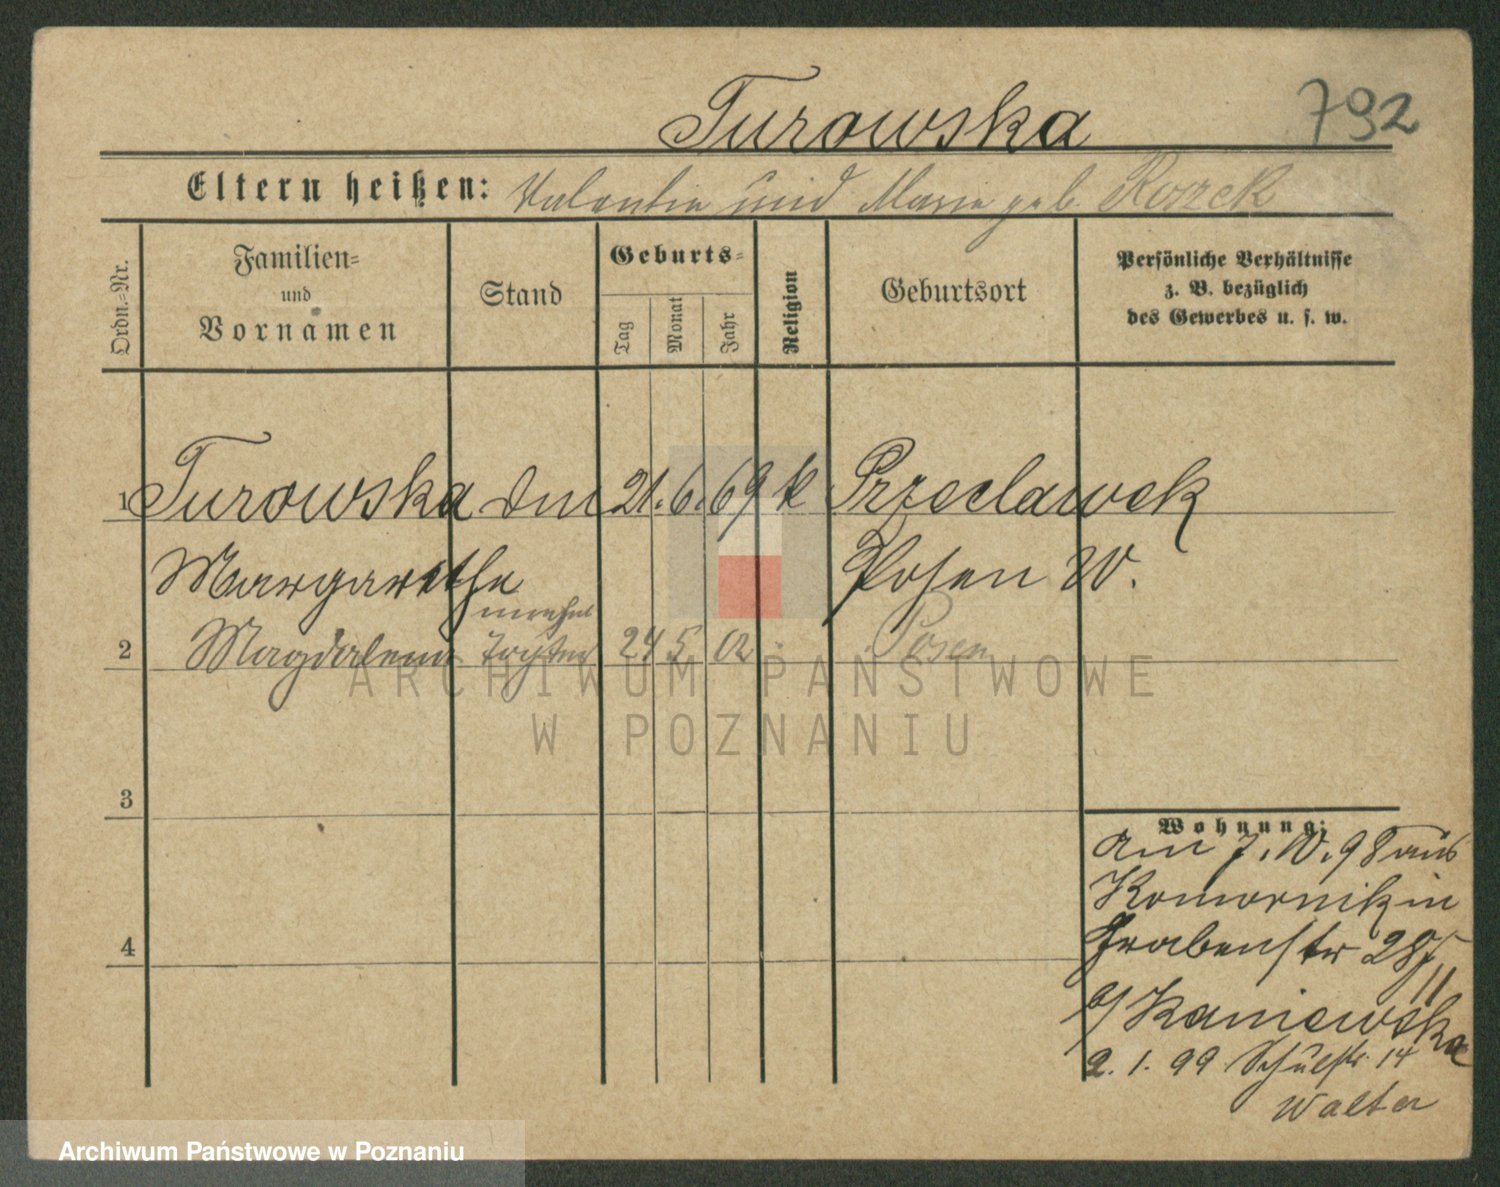 Turowska 792
Eltern heißen: Valentin und Marie geb. Roszek
Ordn.-Nr.
Familien-
und
Vornamen
Stand
Geburts-
Tag
Monat
Jahr
Religion
Geburtsort
Persönliche Verhältnisse
z. B. bezüglich
des Gewerbes u. s. w.
1 Turowska 21. 6. 69 k Przeclawek
Margarethe Posen W.
2 Magdalena Tochter 24 5 02 Posen
ARCHIWUM PAŃSTWOWE
W POZNANIU
3
Wohnung:
am 7. 10. 98 aus
Komornik in
4
Grabenstr 28
II
b/ Kaniewska
2. 1. 99 Schulstr. 14
Walter
Archiwum Państwowe w Poznaniu